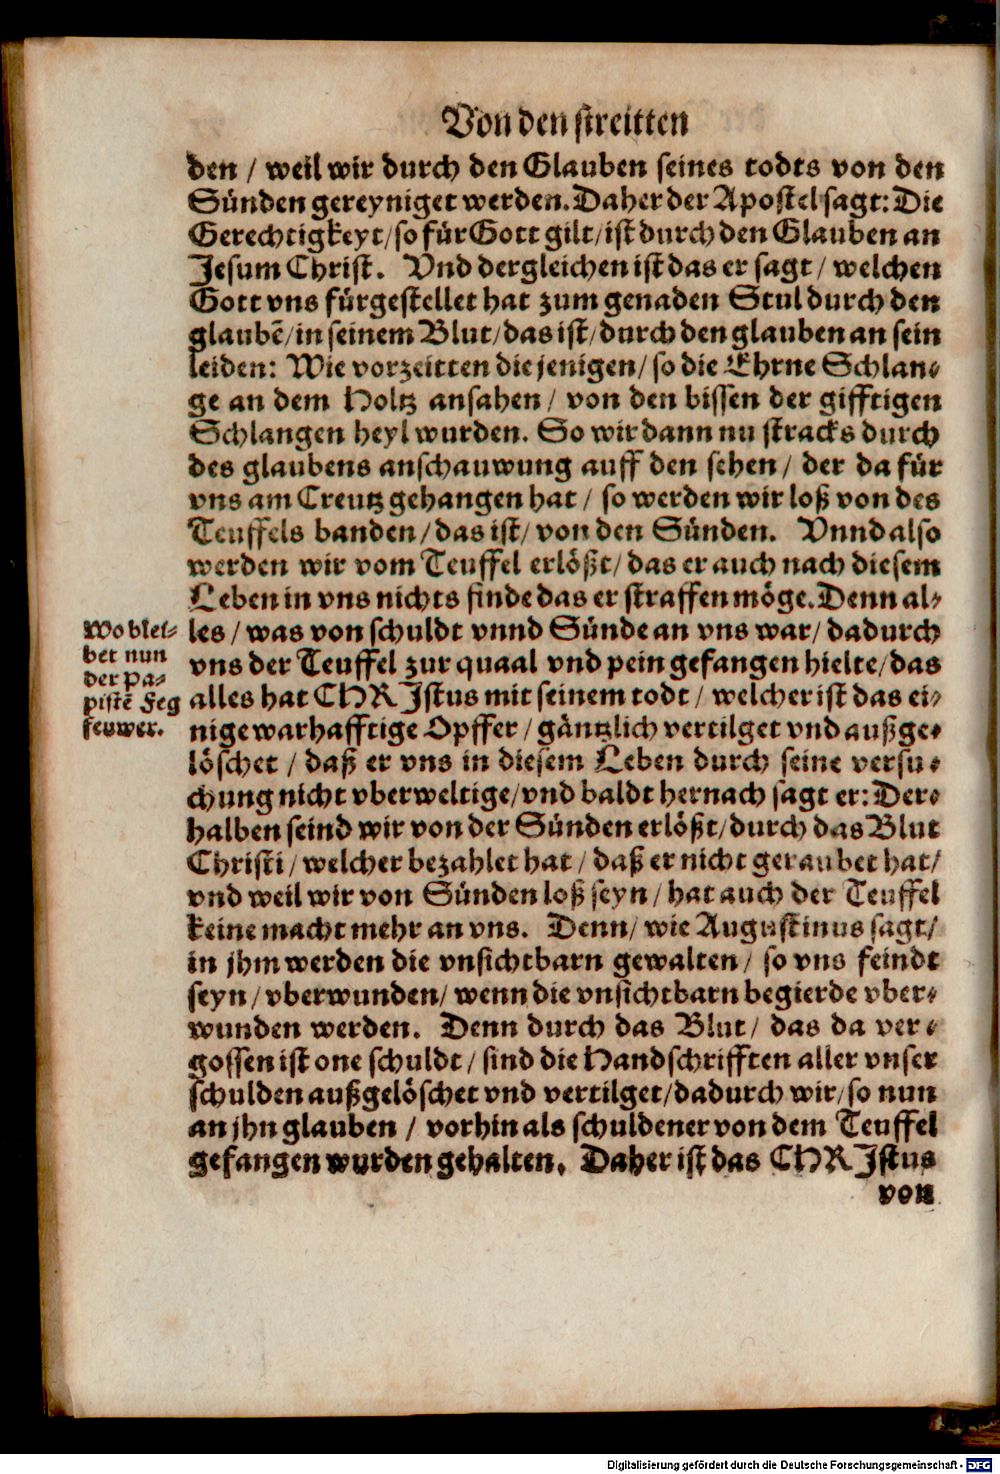 Von den streitten
den / weil wir durch den Glauben seines todts von den
Sünden gereyniget werden. Daher der Apostel sagt: Die
Gerechtigkeyt / so für Gott gilt / ist durch den Glauben an
Jesum Christ. Vnd dergleichen ist das er sagt / welchen
Gott vns fürgestellet hat zum genaden Stul durch den
glaubẽ / in seinem Blut / das ist / durch den glauben an sein
leiden: Wie vorzeitten die jenigen / so die Ehrne Schlan-
ge an dem Holtz ansahen / von den bissen der gifftigen
Schlangen heyl wurden. So wir dann nu stracks durch
des glaubens anschauwung auff den sehen / der da für
vns am Creutz gehangen hat / so werden wir loß von des
Teuffels banden / das ist / von den Sünden. Vnnd also
werden wir vom Teuffel erlößt / das er auch nach diesem
Leben in vns nichts finde das er straffen möge. Denn al-
les / was von schuldt vnnd Sünde an vns war / dadurch
vns der Teuffel zur quaal vnd pein gefangen hielte / das
alles hat CHRJstus mit seinem todt / welcher ist das ei-
nige warhafftige Opffer / gäntzlich vertilget vnd außge-
löschet / daß er vns in diesem Leben durch seine versu-
chung nicht vberweltige / vnd baldt hernach sagt er: Der-
halben seind wir von der Sünden erlößt / durch das Blut
Christi / welcher bezahlet hat / daß er nicht geraubet hat /
vnd weil wir von Sünden loß seyn / hat auch der Teuffel
keine macht mehr an vns. Denn / wie Augustinus sagt /
in jhm werden die vnsichtbarn gewalten / so vns feindt
seyn / vberwunden / wenn die vnsichtbarn begierde vber-
wunden werden. Denn durch das Blut / das da ver-
gossen ist one schuldt / sind die Handschrifften aller vnser
schulden außgelöschet vnd vertilget / dadurch wir / so nun
an jhn glauben / vorhin als schuldener von dem Teuffel
gefangen wurden gehalten. Daher ist das CHRJstus
von
Wo blei-
bet nun
der Pa-
pistẽ Feg
feuwer.
Digitalisierung gefördert durch die Deutsche Forschungsgemeinschaft - DFG